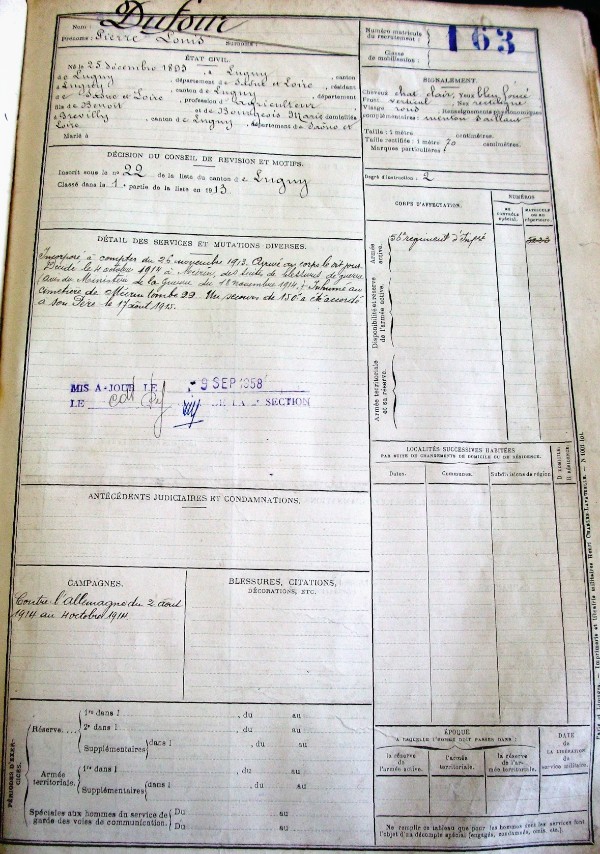 Nom : Dufour
Prénoms : Pierre Louis Surnoms :
Numéro matricule
du recrutement :
163
Classe
de mobilisation :
ÉTAT CIVIL.
Né le 25 décembre 1893, à Lugny, canton
de Lugny, département de Saône et Loire, résidant
à Lugny, canton de Lugny, département
de Saône et Loire, profession d'agriculteur
fils de Benoit et de Bourgeois Marie domiciliés
à canton de Lugny, département de Saône et
Loire
Marié à
SIGNALEMENT.
Cheveux chat clair, Yeux bleu foncé
Front vertical, Nez rectiligne
Visage rond Renseignements physionomiques
complémentaires : menton saillant
Taille : 1 mètre centimètres.
Taille rectifiée : 1 mètre 70 centimètres.
Marques particulières :
Degré d'instruction : 2
DÉCISION DU CONSEIL DE RÉVISION ET MOTIFS.
Inscrit sous le n° 22 de la liste du canton de Lugny
Classé dans la 1e partie de la liste en 1913.
CORPS D'AFFECTATION.
NUMÉROS
AU
CONTRÔLE
SPÉCIAL.
MATRICULE
OU AU
RÉPERTOIRE.
Armée
active.
56e régiment d'Infie
Disponibilité et réserve
de l'armée active.
Armée territoriale
et sa réserve.
DÉTAIL DES SERVICES ET MUTATIONS DIVERSES.
Incorporé à compter du 26 novembre 1913. Arrivé au corps le dit jour.
Décédé le 4 octobre 1914 à Mécrin, des suites de blessures de guerre
avis du Ministère de la Guerre du 18 novembre 1914. Inhumé au
cimetière de Mécrin tombe 22. Un secours de 150f a été accordé
à son Père le 17 août 1915.
MIS A-JOUR LE - 9 SEP 1958
LE DE LA SECTION
LOCALITÉS SUCCESSIVES HABITÉES
PAR SUITE DE CHANGEMENTS DE DOMICILE OU DE RÉSIDENCE.
Dates. Communes. Subdivisions de région.
D. DOMICILE.
R. RÉSIDENCE.
ANTÉCÉDENTS JUDICIAIRES ET CONDAMNATIONS.
CAMPAGNES.
Contre l'Allemagne du 2 août
1914 au 4 octobre 1914
BLESSURES, CITATIONS,
DÉCORATIONS, ETC.
PÉRIODES D'EXERCICES.
Réserve....
1re dans l , du au
2e dans l , du au
Supplémentaires dans l , du au
Armée
territoriale.
1re dans l , du au
Supplémentaires dans l , du au
Spéciales aux hommes du service de
garde des voies de communication.
Du au
Du au
ÉPOQUE
A LAQUELLE L'HOMME DOIT PASSER DANS :
la réserve
de l'armée active.
l'armée
territoriale.
la réserve
de l'ar-
mée territoriale.
DATE
de la
LIBÉRATION DU
service militaire.
Ne remplir ce tableau que pour les hommes dont les services font
l'objet d'un décompte spécial (engagés, condamnés, omis, etc.).